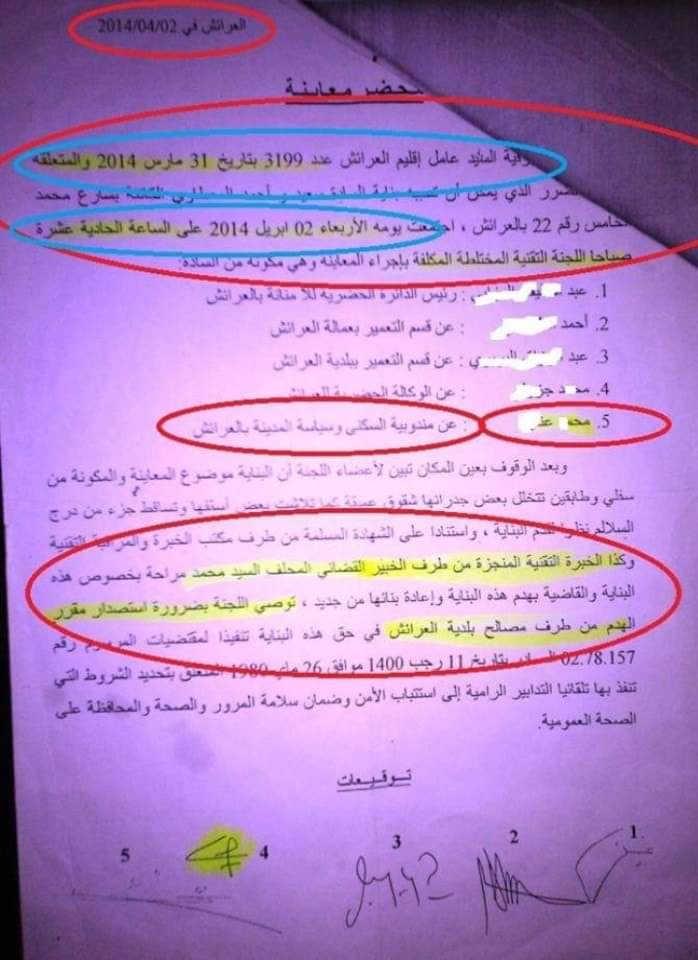 العرائش في 2014/04/02
محضر معاينة
برقية السيد عامل إقليم العرائش عدد 3199 بتاريخ 31 مارس 2014 والمتعلقة
الضرر الذي يمكن أن تسببه بناية السادة سعيد وأحمد القائمة بشارع محمد
الخامس رقم 22 بالعرائش ، اجتمعت يومه الأربعاء 02 ابريل 2014 على الساعة الحادية عشرة
صباحا اللجنة التقنية المختلطة المكلفة بإجراء المعاينة وهي مكونة من السادة:
1. عبد : رئيس الدائرة الحضرية للأمانة بالعرائش
2. أحمد : عن قسم التعمير بعمالة العرائش
3. عبد : عن قسم التعمير ببلدية العرائش
4. محمد : عن الوكالة الحضرية للعرائش
5. محمد : عن مندوبية السكنى وسياسة المدينة بالعرائش
وبعد الوقوف بعين المكان تبين لأعضاء اللجنة أن البناية موضوع المعاينة والمكونة من
سفلي وطابقين تتخلل بعض جدرانها شقوق عميقة كما تلاشت بعض أسقفها وتساقط جزء من درج
السلالم نظرا لقدم البناية ، واستنادا على الشهادة المسلمة من طرف مكتب الخبرة والمراقبة التقنية
وكذا الخبرة التقنية المنجزة من طرف الخبير القضائي المحلف السيد محمد مراحة بخصوص هذه
البناية والقاضية بهدم هذه البناية وإعادة بنائها من جديد ، توصي اللجنة بضرورة استصدار مقرر
الهدم من طرف مصالح بلدية العرائش في حق هذه البناية تنفيذا لمقتضيات المرسوم رقم
02.78.157 الصادر بتاريخ 11 رجب 1400 موافق 26 ماي 1980 المتعلق بتحديد الشروط التي
تنفذ بها تلقائيا التدابير الرامية إلى استتباب الأمن وضمان سلامة المرور والصحة والمحافظة على
الصحة العمومية.
توقيعات
1 2 3 4 5